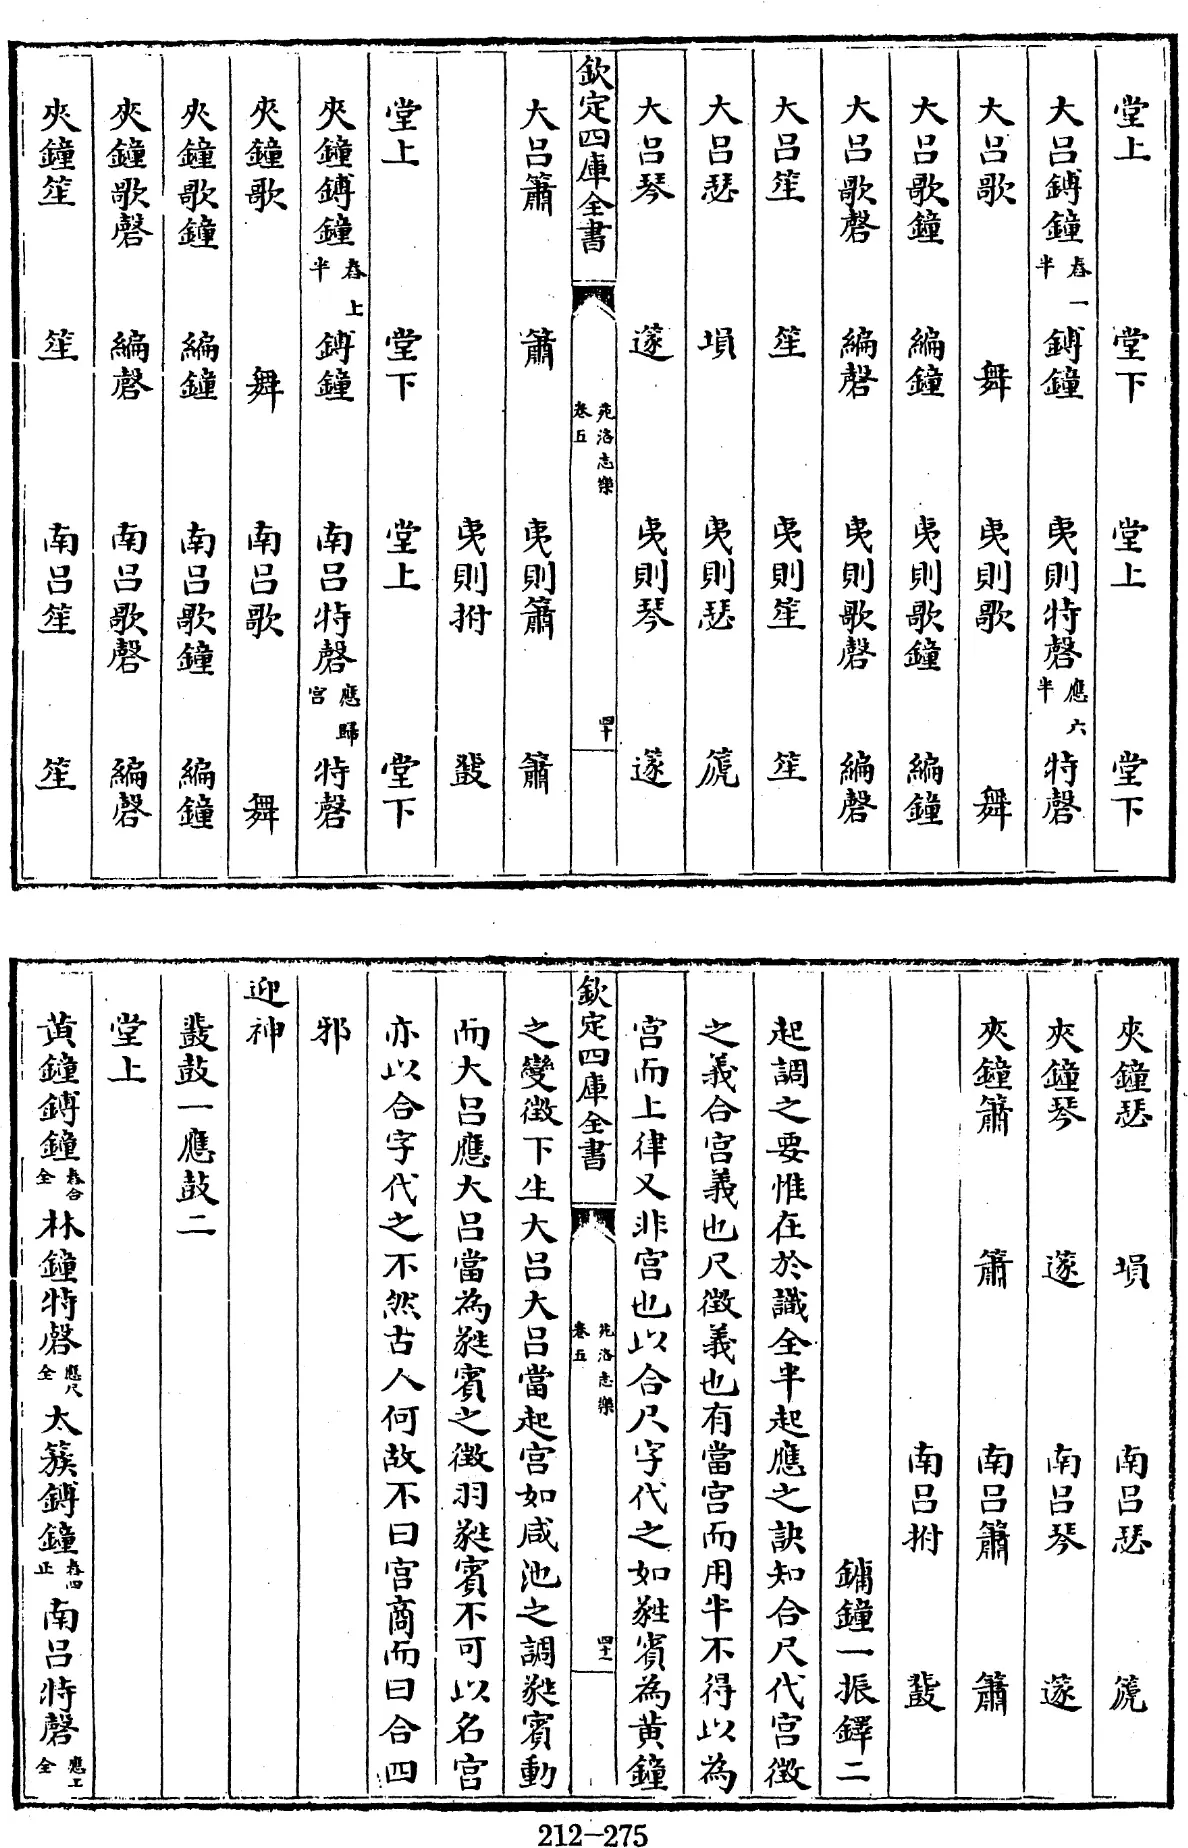 堂上　堂下　堂上　堂下
大呂鎛鐘舂一半　鎛鐘　夷則特磬應六半　特磬
大呂歌　舞　夷則歌　舞
大呂歌鐘　編鐘　夷則歌鐘　編鐘
大呂歌磬　編磬　夷則歌磬　編磬
大呂笙　笙　夷則笙　笙
大呂瑟　塤　夷則瑟　篪
大呂琴　篴　夷則琴　篴
欽定四庫全書　苑洛志樂卷五　四十
大呂簫　簫　夷則簫　簫
夷則拊　鼗
堂上　堂下　堂上　堂下
夾鐘鎛鐘舂上半　鎛鐘　南呂特磬應歸宮　特磬
夾鐘歌　舞　南呂歌　舞
夾鐘歌鐘　編鐘　南呂歌鐘　編鐘
夾鐘歌磬　編磬　南呂歌磬　編磬
夾鐘笙　笙　南呂笙　笙
夾鐘瑟　塤　南呂瑟　篪
夾鐘琴　篴　南呂琴　篴
夾鐘簫　簫　南呂簫　簫
南呂拊　鼗
鏞鐘一振鐸二
起調之要惟在於識全半起應之訣知合尺代宮徵
之義合宮義也尺徵義也有當宮而用半不得以為
宮而上律又非宮也以合尺字代之如蕤賓為黃鐘
欽定四庫全書　苑洛志樂卷五　四十一
之變徵下生大呂大呂當起宮如咸池之調蕤賓動
而大呂應大呂當為蕤賓之徵羽蕤賓不可以名宮
亦以合字代之不然古人何故不曰宮商而曰合四
邪
迎神
鼗鼓一應鼓二
堂上
黃鐘鎛鐘舂合全林鐘特磬應尺全太簇鎛鐘舂四正南呂特磬應工全
212-275